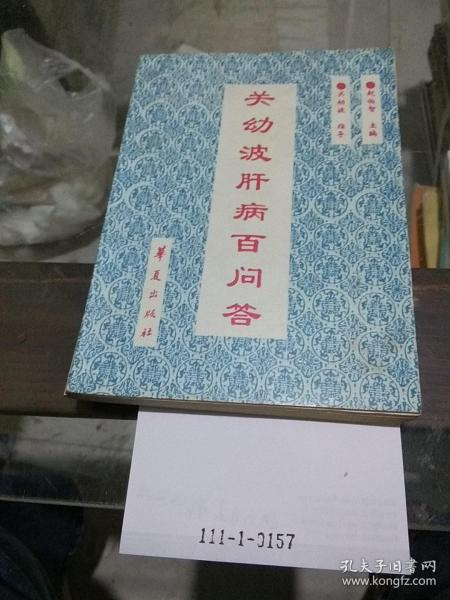 赵伯智 主编
关幼波 指导
关幼波肝病百问答
华夏出版社
111-1-0157
孔夫子旧书网
www.kongfz.com